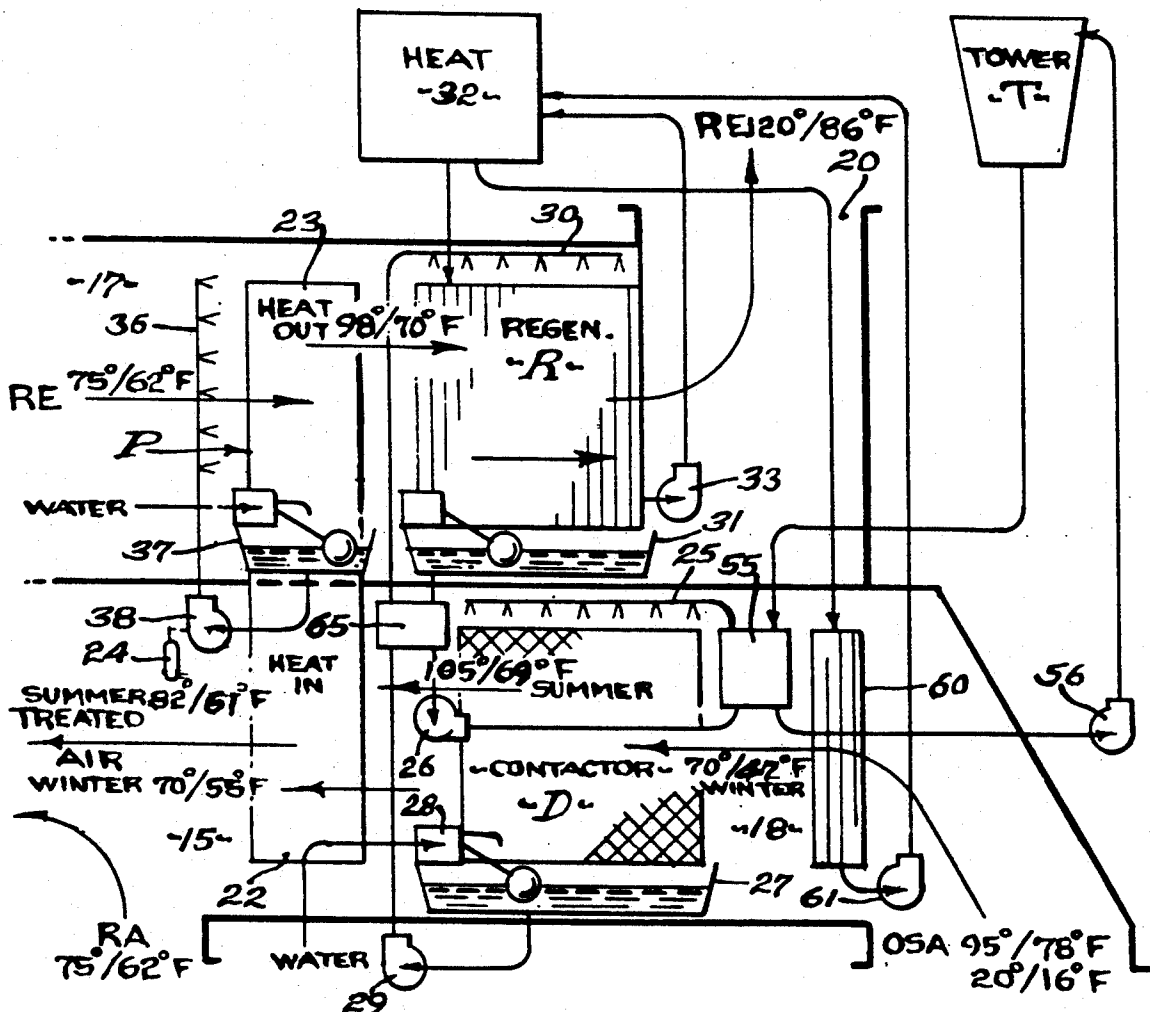 HEAT
-32-
TOWER
-T-
RE 120°/86°F
20
23
30
-17-
36
HEAT
OUT 98°/70°F
REGEN.
-R-
RE 75°/62°F
P
WATER
33
37
31
25
55
38
65
24
HEAT
IN
105°/69°F
SUMMER
60
56
SUMMER 82°/61°F
TREATED
AIR
WINTER 70/55°F
26
-CONTACTOR-
-D-
70°/47°F
WINTER
28
-15-
-18-
22
27
61
RA
75°/62°F
WATER
29
OSA 95°/78°F
20°/16°F